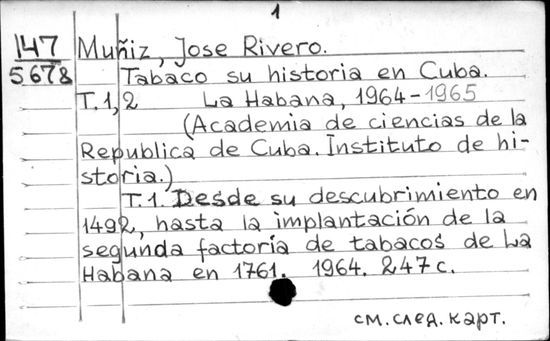 1
147 Muñiz, Jose Rivero.
5678 Tabaco su historia en Cuba.
T.1,2 La Habana, 1964-1965
(Academia de ciencias de la
Republica de Cuba. Instituto de hi-
storia.)
T.1. Desde su descubrimiento en
1492, hasta la implantación de la
segunda factoria de tabacos de La
Habana en 1761. 1964. 247 c.
см. след. карт.